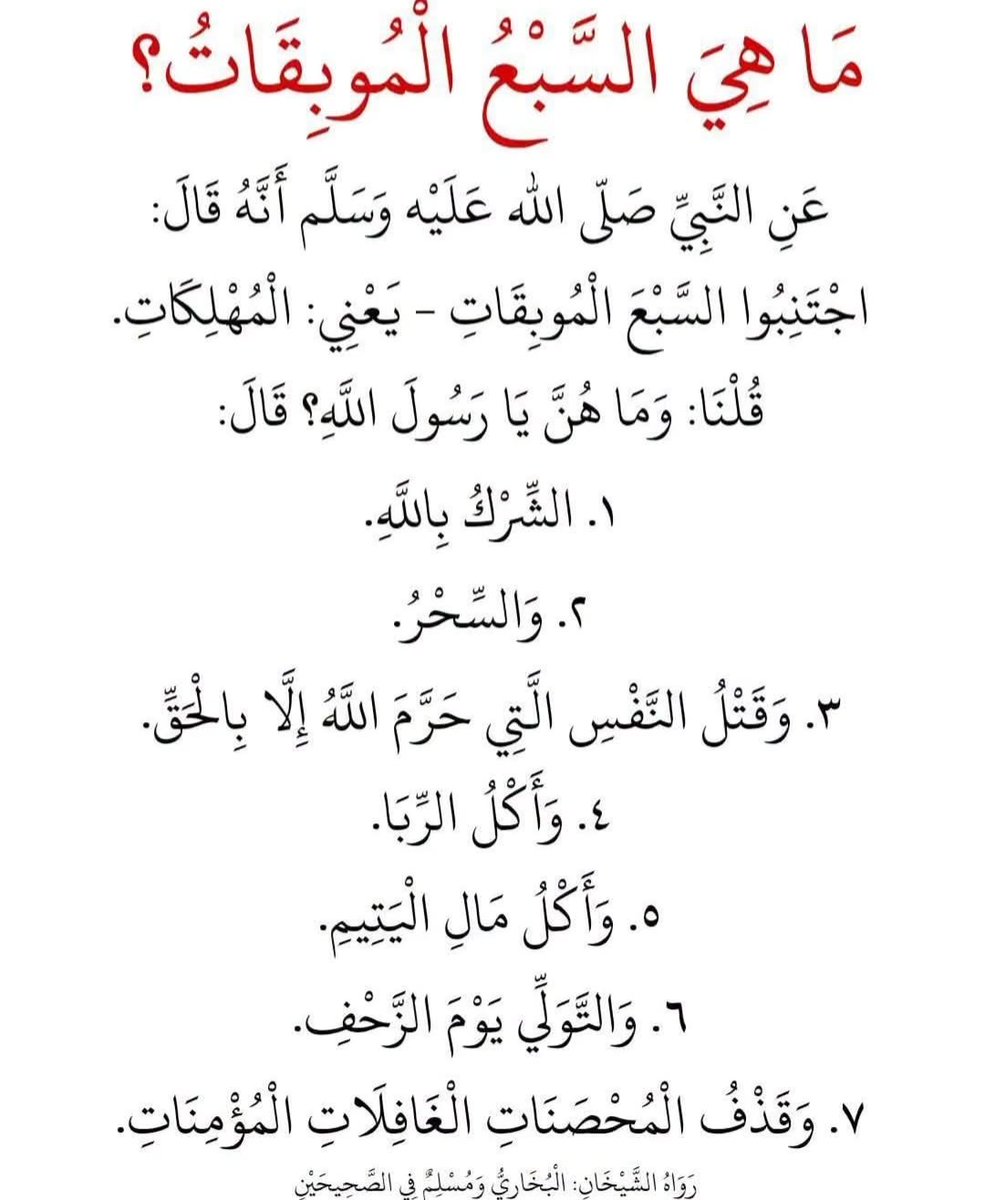 مَا هِيَ السَّبْعُ الْمُوبِقَاتُ؟
عَنِ النَّبِيِّ صَلّى الله عَلَيْه وَسَلَّم أَنَّهُ قَالَ:
اجْتَنِبُوا السَّبْعَ الْمُوبِقَاتِ - يَعْنِي: الْمُهْلِكَاتِ.
قُلْنَا: وَمَا هُنَّ يَا رَسُولَ اللَّهِ؟ قَالَ:
١. الشِّرْكُ بِاللَّهِ.
٢. وَالسِّحْرُ.
٣. وَقَتْلُ النَّفْسِ الَّتِي حَرَّمَ اللَّهُ إِلَّا بِالْحَقِّ.
٤. وَأَكْلُ الرِّبَا.
٥. وَأَكْلُ مَالِ الْيَتِيمِ.
٦. وَالتَّوَلِّي يَوْمَ الزَّحْفِ.
٧. وَقَذْفُ الْمُحْصَنَاتِ الْغَافِلَاتِ الْمُؤْمِنَاتِ.
رَوَاهُ الشَّيْخَانِ: الْبُخَارِيُّ وَمُسْلِمٌ فِي الصَّحِيحَيْنِ